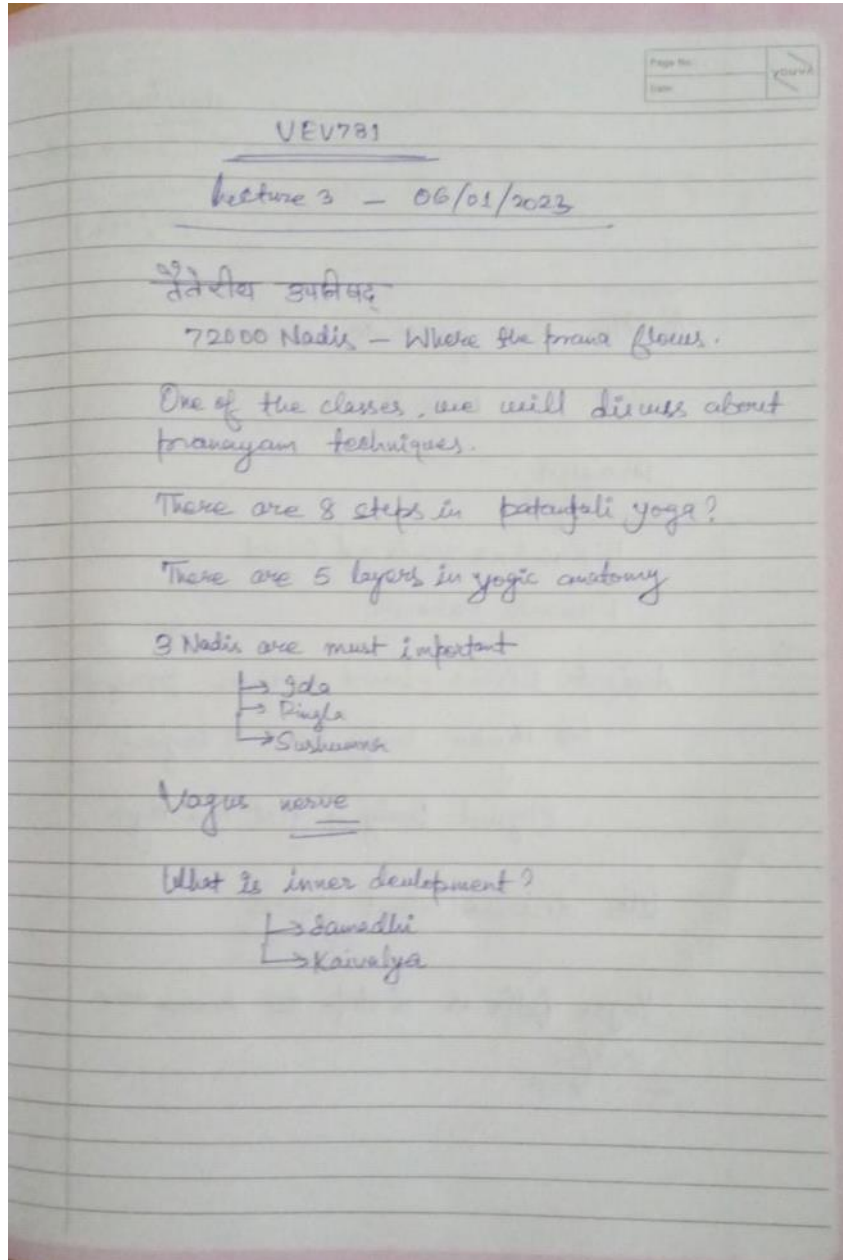 Page No.
Date:
YOUVA
VEV781
Lecture 3 - 06/01/2023
तैतेरीय उपनीषद्
72000 Nadis - Where the prana flows.
One of the classes, we will discuss about
pranayam techniques.
There are 8 steps in patanjali yoga?
There are 5 layers in yogic anatomy
3 Nadis are must important
→ Ida
→ Pingla
→ Sushumna
Vagus nerve
What is inner development?
→ Samadhi
→ Kaivalya